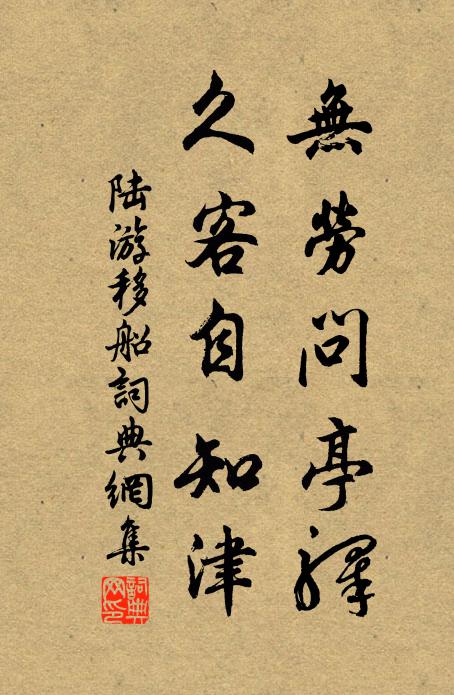 無勞問亭驛
久客自知津
陸游移船詞典網集
詞典网印